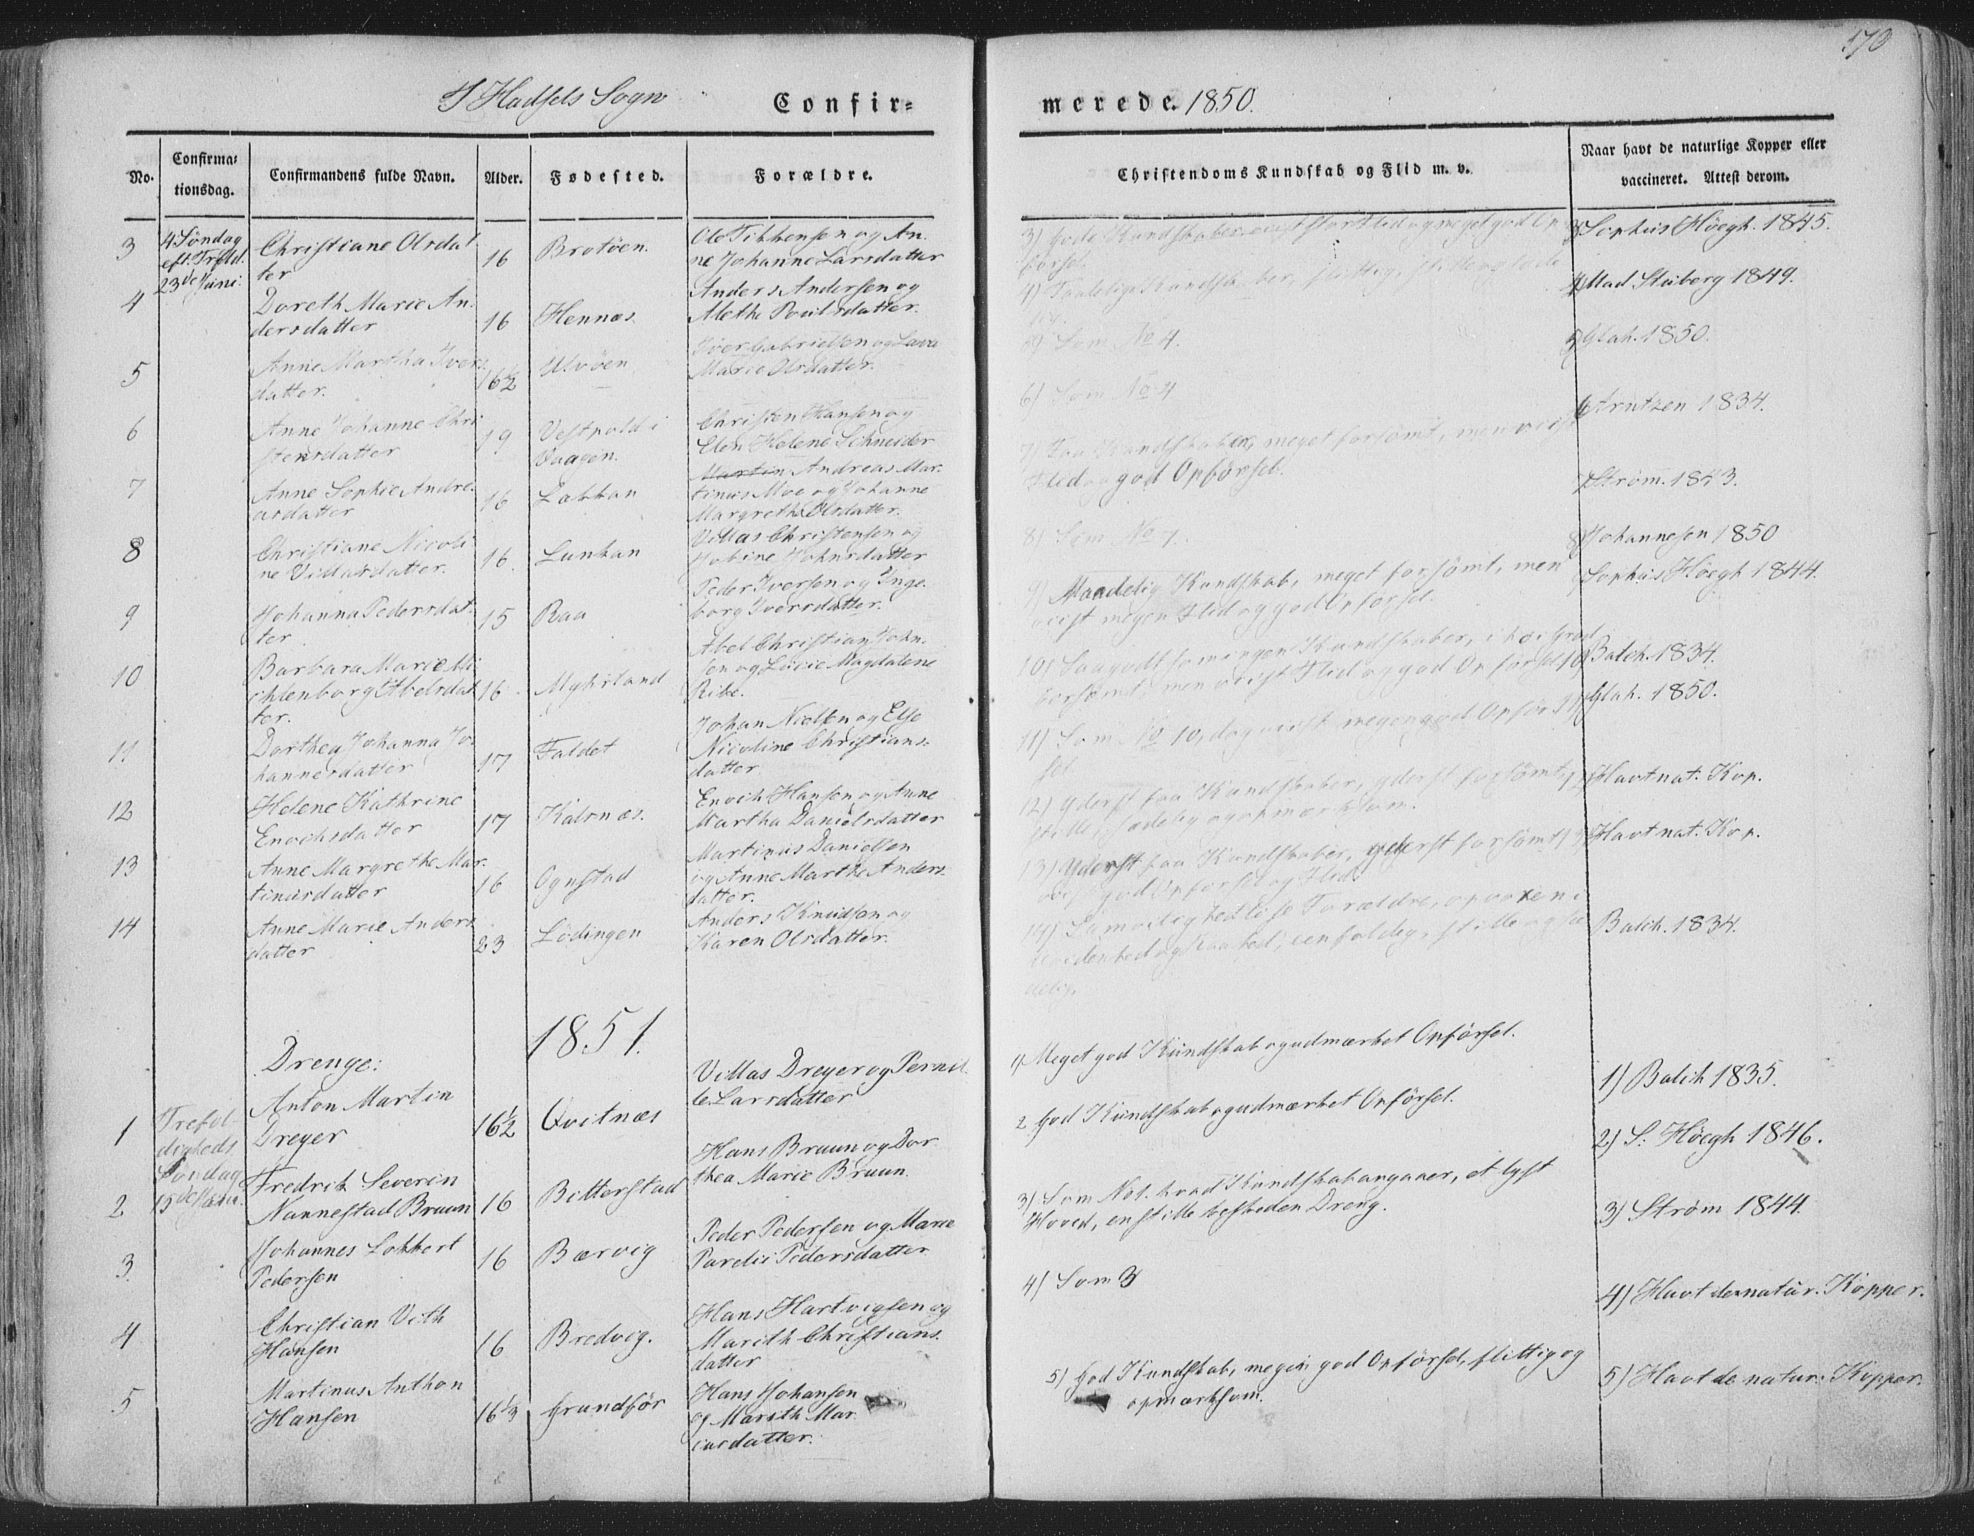 170
I Hadsels Sogn
Confir-
merede. 1850.
No.
Confirma-
tionsdag.
Confirmandens fulde Navn.
Alder.
Fødested.
Forældre.
Christendoms Kundskab og Flid m. v.
Naar havt de naturlige Kopper eller
vaccineret. Attest derom.
3
4 Søndag
eft. Trefold.
23de Juni.
Christiane Olsdat-
ter
16
Brotöen
Ole Tikkensen og An-
ne Johanne Larsdatter
3) Gode Kundskaber
Flid og meget god Op-
försel.
Sophus Höegh. 1845.
4
Doreth Marie An-
dersdatter
16
Hennes.
Anders Andersen og
Methe Poulsdatter.
4) Taalelige Kundskaber, flittig, stille
4) Mad Stuberg 1849.
5
Anne Martha Ivers-
datter.
16½
Ulvöen
Iver Gabrielsen og
Marie Olsdatter.
5) Som No 4.
5) Glah. 1850.
6
Anne Johanne Chri-
stensdatter
19
Vestpold i
Vaagen.
Christen Hansen og
Elen Helene Schneider
6) Som No 4
6) Arntzen 1834.
7
Anne Sophie Andre-
asdatter
16
Lokkan
Martin Andreas Mar-
tinus Moe og Johanne
Margrethe Olsdatter.
7) Faa Kundskaber, meget forsömt, men viist
Flid og god Opförsel.
7) Ström. 1843.
8
Christiane Nicoli-
ne Villasdatter.
16.
Lunkan
Villas Christensen og
Jobine Johnsdatter
8) Som No 7.
8) Johannesen 1850
9
Johanna Pedersdat-
ter
15
Raa
Peder Iversen og Inge-
borg Iversdatter.
9) Maadelig Kundskab, meget forsömt, men
viist megen Flid og god Opförsel.
Sophus Höegh 1844.
10
Barbara Marie Mi-
chlenborg Abelsdat-
ter.
16.
Myhrland
Abel Christian John-
sen og Lucie Magdalene
Ribe.
10) Saagodtsom ingen Kundskaber, i høi Grad
forsømt, men viist Flid og god Opförsel
10) Balch. 1834.
11
Dorthea Johanna Jo-
hannesdatter
17
Faldet
Johan Nielsen og Else
Nicoline Christians-
datter
11) Som No 10, dog viist megen god Opför-
sel
11) Glah. 1850.
12
Helene Kathrine
Enochsdatter
17
Kalsnæs.
Enoch Hansen og Anne
Martha Danielsdatter
12) Yderst faa Kundskaber, yderst forsömt,
stille, sædelig og opmærksom.
12) Havt nat. Kop.
13
Anne Margrethe Mar-
tinusdatter
16
Ognstad
Martinus Danielsen
og Anne Marthe Anders-
datter.
13) Yderst faa Kundskaber, yderst forsömt,
viist god Opförsel og Flid.
13) Havt nat. Kop.
14
Anne Marie Anders-
datter
23
Lödingen
Anders Knudsen og
Karen Olsdatter.
14) Samvittighedslöse Forældre, opvoxen i
Uvidenhed og Raahed, eenfoldig, stille og sæ-
delig.
Balch. 1834.
1851.
Drenge:
1
Trefol-
digheds
Söndag
15de Juni.
Anton Martin
Dreyer
16½
Qvitnæs
Villas Dreyer og Pernil-
le Larsdatter
1) Meget god Kundskab og udmærket Opförsel.
1) Balch 1835.
2
Fredrik Severin
Nannestad Bruun
16
Bitterstad
Hans Bruun og Dor-
thea Marie Bruun.
2 God Kundskab og udmærket Opförsel.
2) S: Höegh 1846.
3.
Johannes Lokkert
Pedersen
16
Bærvig
Peder Pedersen og Marie
Pardii Pedersdatter
3) Som No 1. hvad Kundskab angaaer, et lyst
Hoved, en stille beskeden Dreng.
3) Strøm 1844.
4
Christian Vith
Hansen
16
Bredvig.
Hans Hartvigsen og
Mareth Christians-
datter
4) Som 3
4) Havt de natur. Kopper.
5
Martinus Anthon
Hansen
16⅓
Grundför
Hans Johansen
og Mareth Mar-
iusdatter.
5) God Kundskab, megen god Opförsel, flittig og
opmærksom.
5) Havt de natur. Kopper.